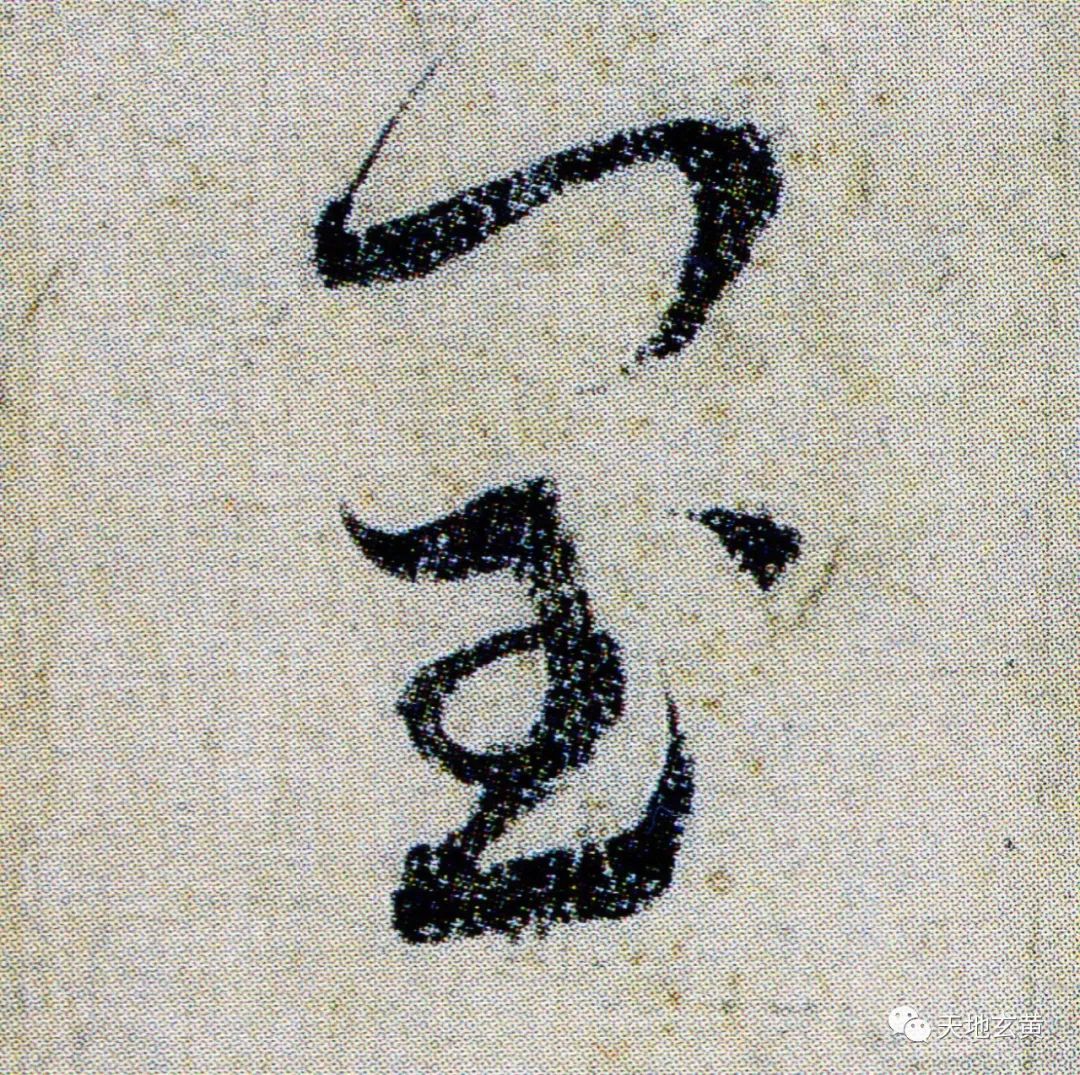 室
天地玄黄